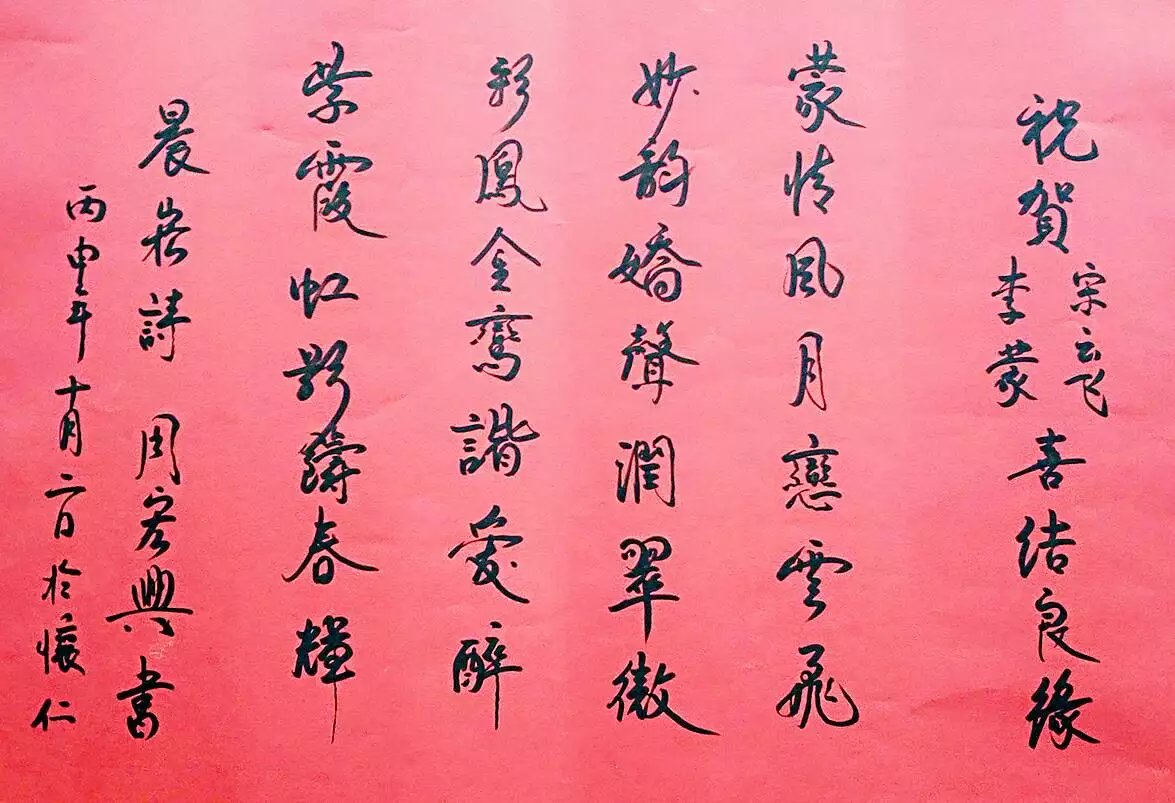 祝賀宋云飞李蒙喜结良缘
蒙情風月戀雲飛
妙韵嬌聲潤翠微
彩鳳金鸞諧愛醉
紫霞虹影鑄春輝
晨崧詩 周宏興書
丙申年十月二日於懷仁